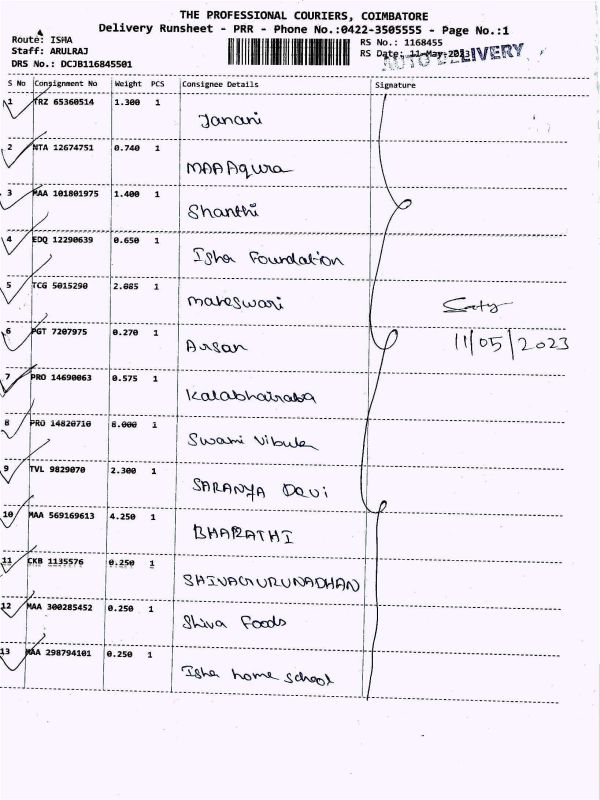 THE PROFESSIONAL COURIERS, COIMBATORE
Delivery Runsheet - PRR - Phone No.:0422-3505555 - Page No.:1
Route: ISHA
Staff: ARULRAJ
DRS No.: DCJB116845501
RS No.: 1168455
RS Date: 11-May-2023
AUTO DELIVERY
S No Consignment No Weight PCS Consignee Details Signature
1 TRZ 65360514 1.300 1 Janani
2 NTA 12674751 0.740 1 MAA Aqura
3 MAA 101801975 1.400 1 Shanthi
4 EDQ 12290639 0.650 1 Isha Foundation
5 TCG 5015290 2.085 1 maheswari
6 PGT 7207975 0.270 1 Arsan
11/05/2023
7 PRO 14690063 0.575 1 Kalabhairaba
8 PRO 14820710 8.000 1 Swami Vibula
9 TVL 9829070 2.300 1 SARANYA Devi
10 MAA 569169613 4.250 1 BHARATHI
11 CKB 1135576 0.250 1 SHIVAGURUNADHAN
12 MAA 300285452 0.250 1 Shiva Foods
13 MAA 298794101 0.250 1 Isha home school